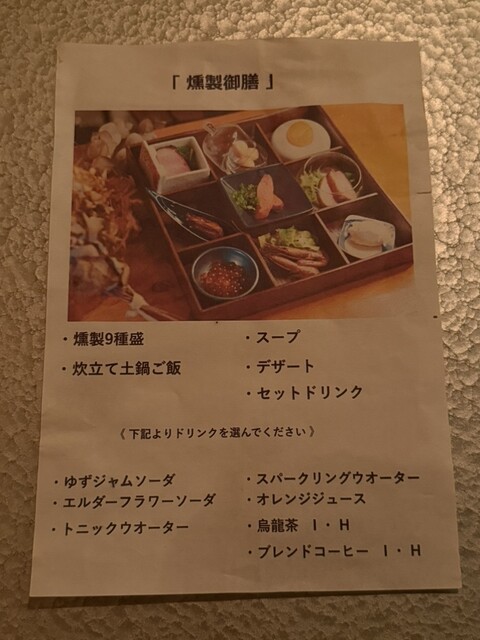 「 燻製御膳 」
・燻製9種盛
・炊立て土鍋ご飯
・スープ
・デザート
・セットドリンク
《 下記よりドリンクを選んでください 》
・ゆずジャムソーダ
・エルダーフラワーソーダ
・トニックウオーター
・スパークリングウオーター
・オレンジジュース
・烏龍茶 I・H
・ブレンドコーヒー I・H